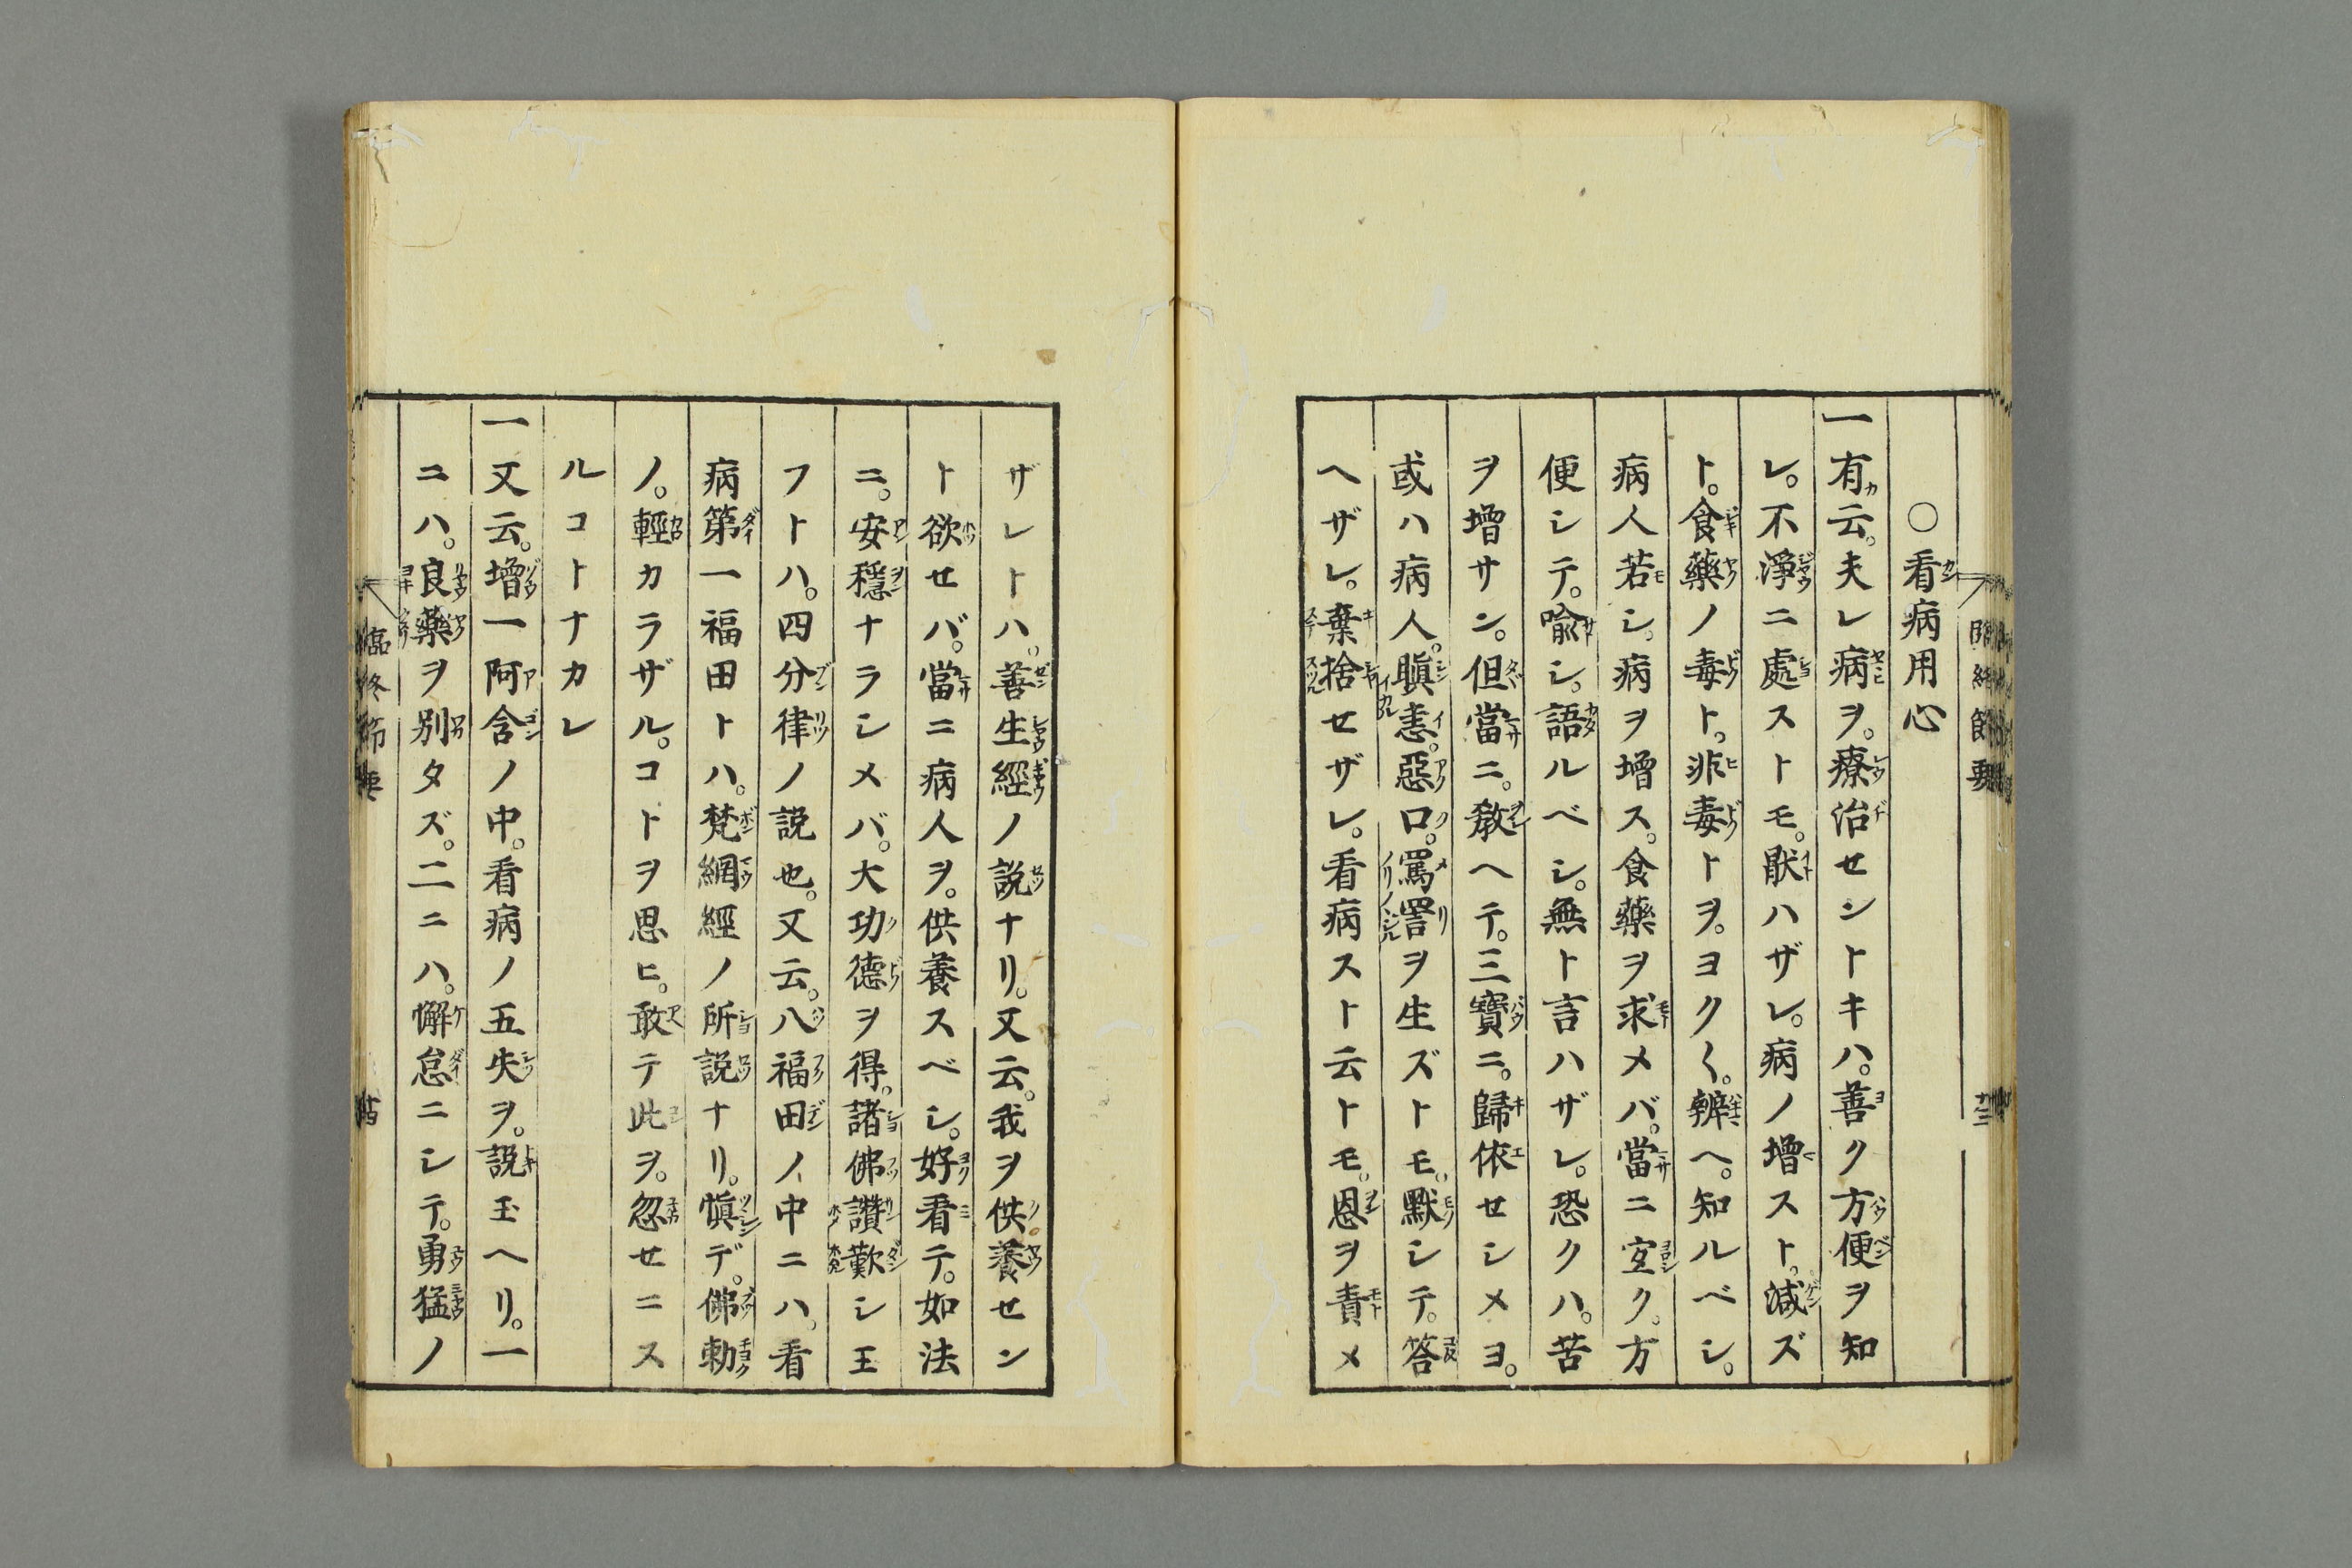 臨終節要
○看病用心
一有云。夫レ病ヲ。療治セントキハ。善ク方便ヲ知
レ。不淨ニ處ストモ。厭ハザレ。病ノ增スト。減ズ
ト。食藥ノ毒ト。非毒トヲ。ヨクく。辨ヘ。知ルベシ。
病人若シ。病ヲ增ス。食藥ヲ求メバ。當ニ宜ク。方
便シテ。喩シ。語ルベシ。無ト言ハザレ。恐クハ。苦
ヲ增サン。但當ニ。敎ヘテ。三寶ニ。歸依セシメヨ。
或ハ病人。瞋恚。惡口。罵詈ヲ生ズトモ。默シテ。答
ヘザレ。棄捨セザレ。看病スト云トモ。恩ヲ責メ
ザレトハ。善生經ノ説ナリ。又云。我ヲ供養セン
ト欲セバ。當ニ病人ヲ。供養スベシ。好看テ。如法
ニ。安穩ナラシメバ。大功德ヲ得。諸佛讚歎シ玉
フトハ。四分律ノ説也。又云。八福田ノ中ニハ。看
病第一福田トハ。梵網經ノ所説ナリ。愼デ。佛勅
ノ。輕カラザル。コトヲ思ヒ。敢テ此ヲ。忽セニス
ルコトナカレ
一又云。增一阿含ノ中。看病ノ五失ヲ。説玉ヘリ。一
ニハ。良藥ヲ別タズ。二ニハ。懈怠ニシテ。勇猛ノ
臨終節要